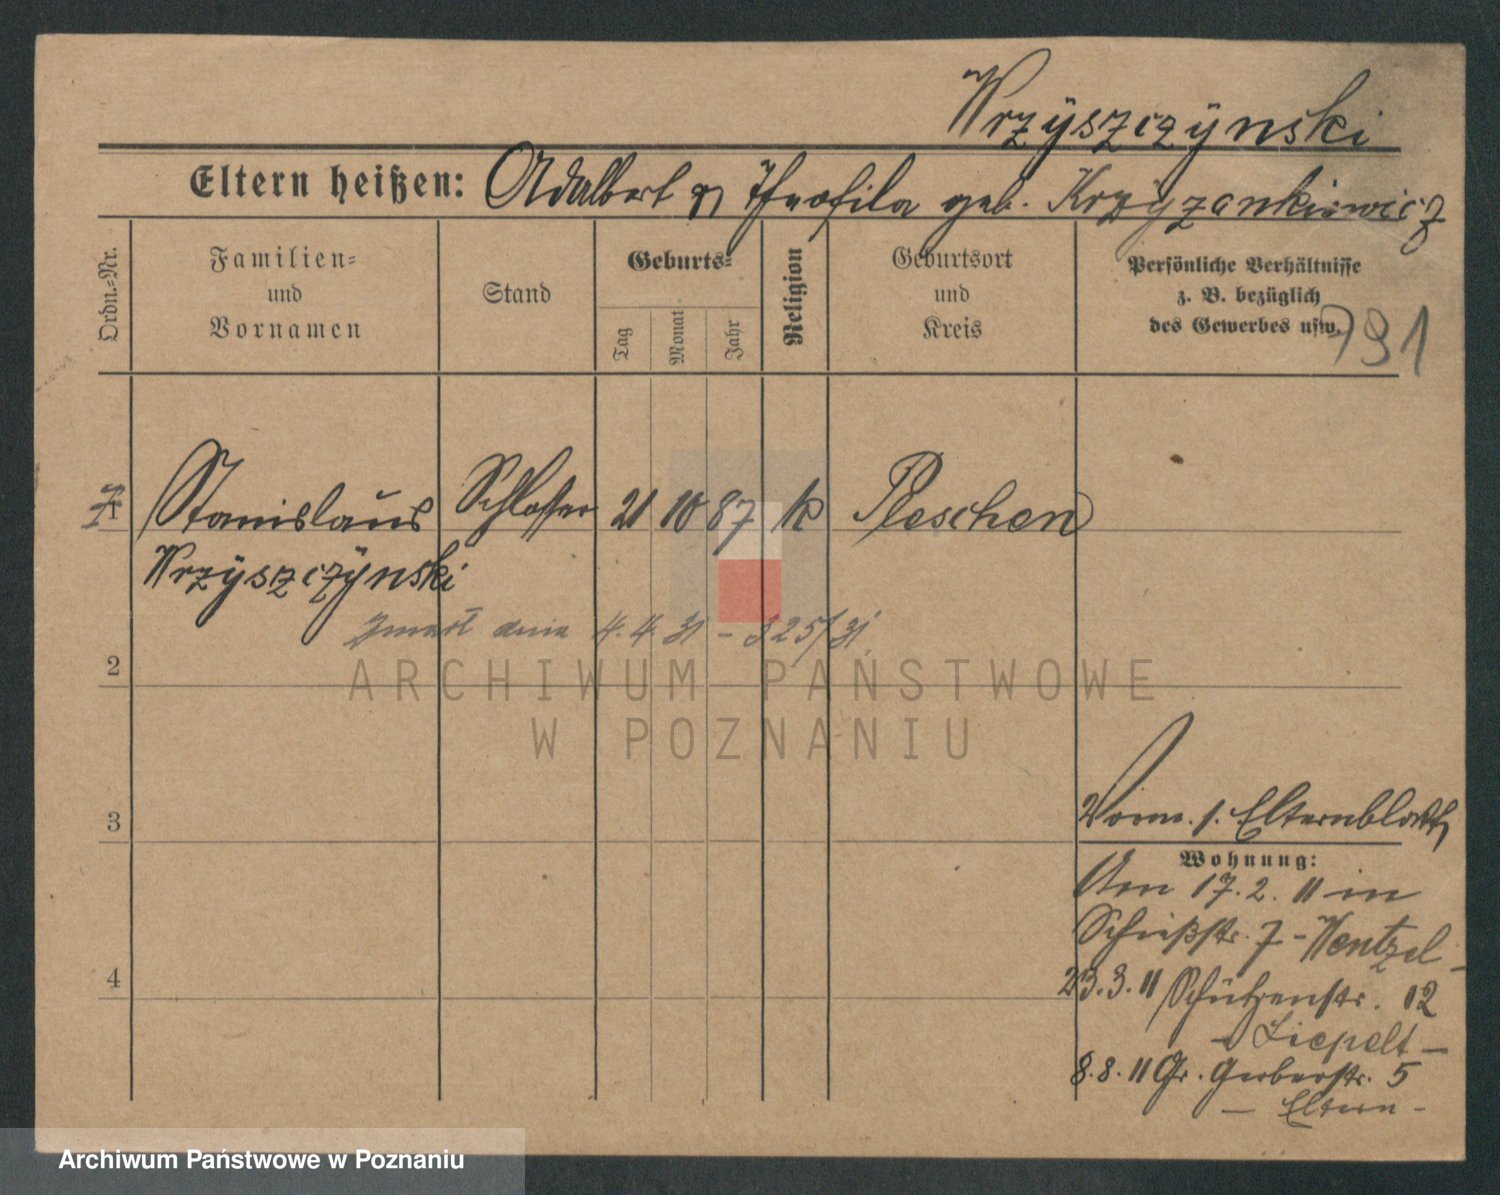 Wrzyszczynski
Eltern heißen: Adalbert u Theofila geb. Krzyzankiewicz
Ordn.-Nr.
Familien-
und
Vornamen
Stand
Geburts-
Tag
Monat
Jahr
Religion
Geburtsort
und
Kreis
Persönliche Verhältnisse
z. B. bezüglich
des Gewerbes usw.
791
1 Stanislaus Schlosser 21 10 87 k Pleschen
Wrzyszczynski
Zmarł dnia 4.4.31 - 325/31
2
ARCHIWUM PAŃSTWOWE
W POZNANIU
3
Vorm. s. Elternblatt
Wohnung:
Am 17.2.11 in
Schießstr. 7 - Wentzel -
23.3.11 Schützenstr. 12
- Liepelt -
4
8.8.11 Gr. Gerberstr. 5
- Eltern -
Archiwum Państwowe w Poznaniu